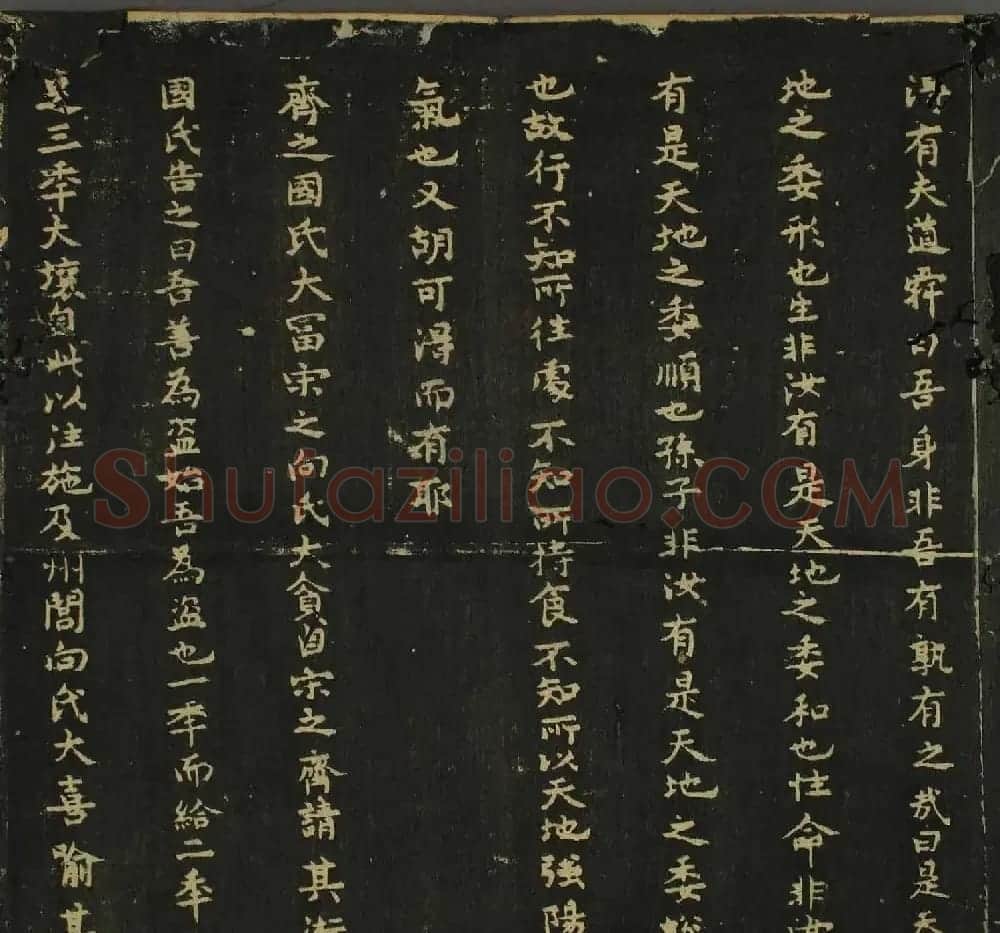 得有夫道舜曰吾身非吾有孰有之哉曰是天
地之委形也生非汝有是天地之委和也性命非汝
有是天地之委順也孫子非汝有是天地之委蛻
也故行不知所往處不知所持食不知所以天地強陽
氣也又胡可得而有耶
齊之國氏大冨宋之向氏大貪自宋之齊請其術
國氏告之曰吾善為盗始吾為盗也一秊而給二秊
足三秊大壤自此以往施及州閭向氏大喜喻其
Shufaziliao.COM